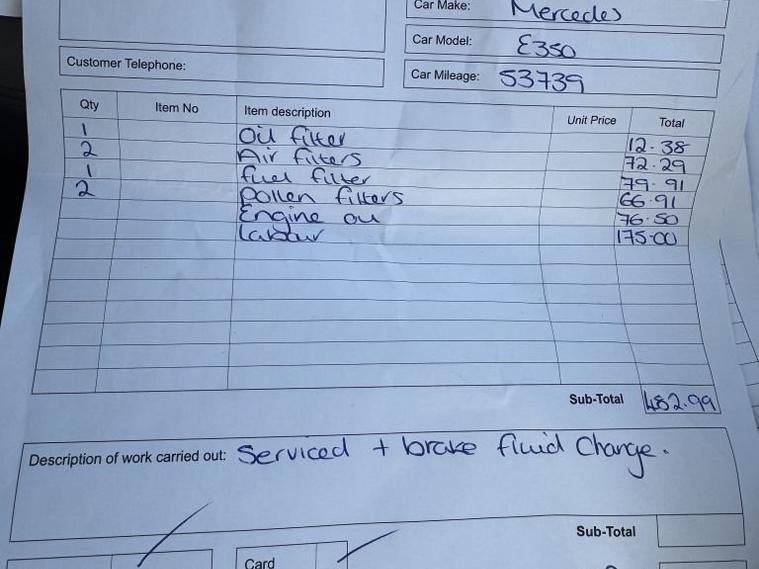 Car Make: Mercedes
Car Model: E350
Customer Telephone:
Car Mileage: 53739
Qty Item No Item description Unit Price Total
1 Oil filter 12.38
2 Air filters 72.29
1 fuel filter 79.91
2 pollen filters 66.91
Engine oil 76.50
Labour 175.00
Sub-Total 482.99
Description of work carried out: Serviced + brake fluid Change.
Sub-Total
Card